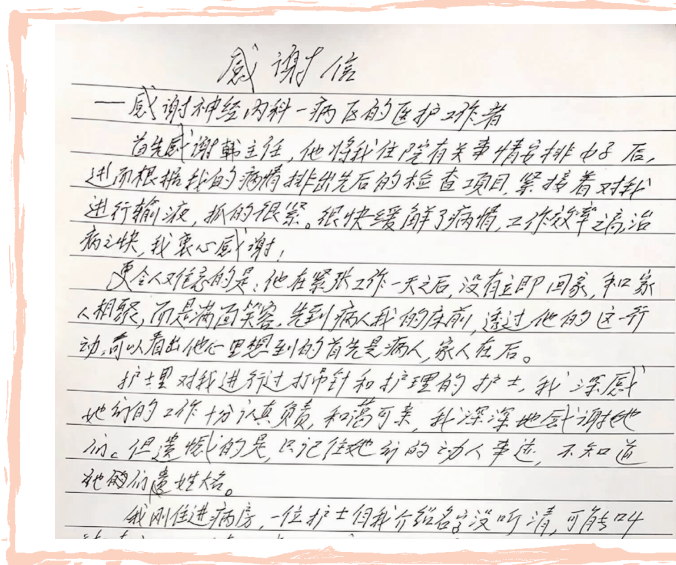 感谢信
—感谢神经内科一病区的医护工作者
首先感谢韩主任，他将我住院有关事情安排好后，
进而根据我的病情排出先后的检查项目，紧接着对我
进行输液，抓的很紧。很快缓解了病情，工作效率之高治
病之快，我衷心感谢！
更令人难忘的是：他在紧张工作一天之后，没有立即回家，和家
人相聚，而是满面笑容，先到病人我的床前，透过他的这一行
动，可以看出他心里想到的首先是病人，家人在后。
护士里对我进行过打吊针和护理的护士，我深感
她们的工作十分认真负责，和蔼可亲，我深深地感谢她
们。但遗憾的是，只记住她们的动人事迹，不知道
她们遗姓名。
我刚住进病房，一位护士自我介绍名字没听清，可能叫